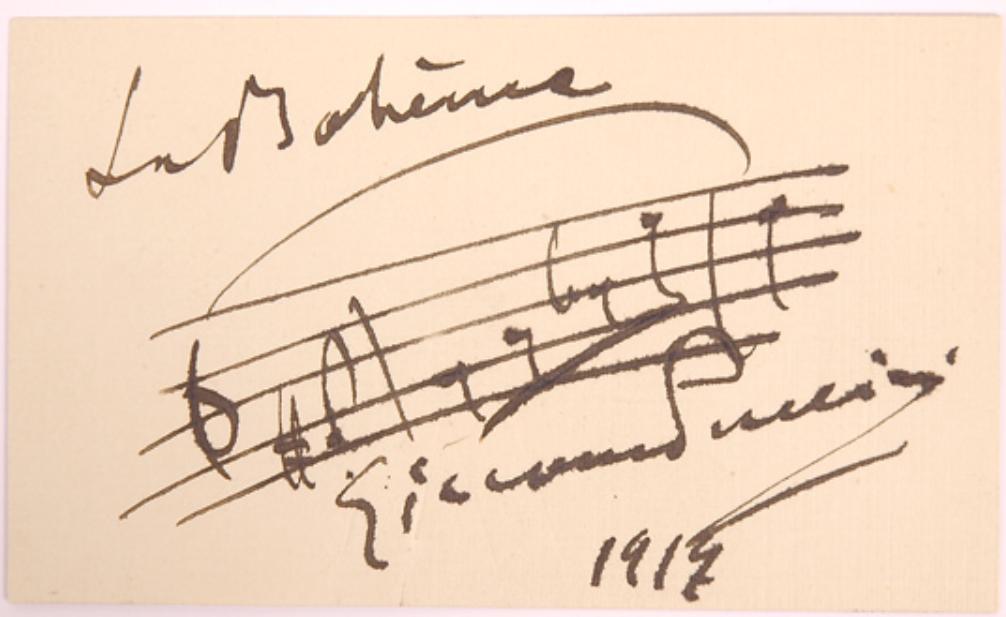 La Bohème
Giacomo Puccini
1917